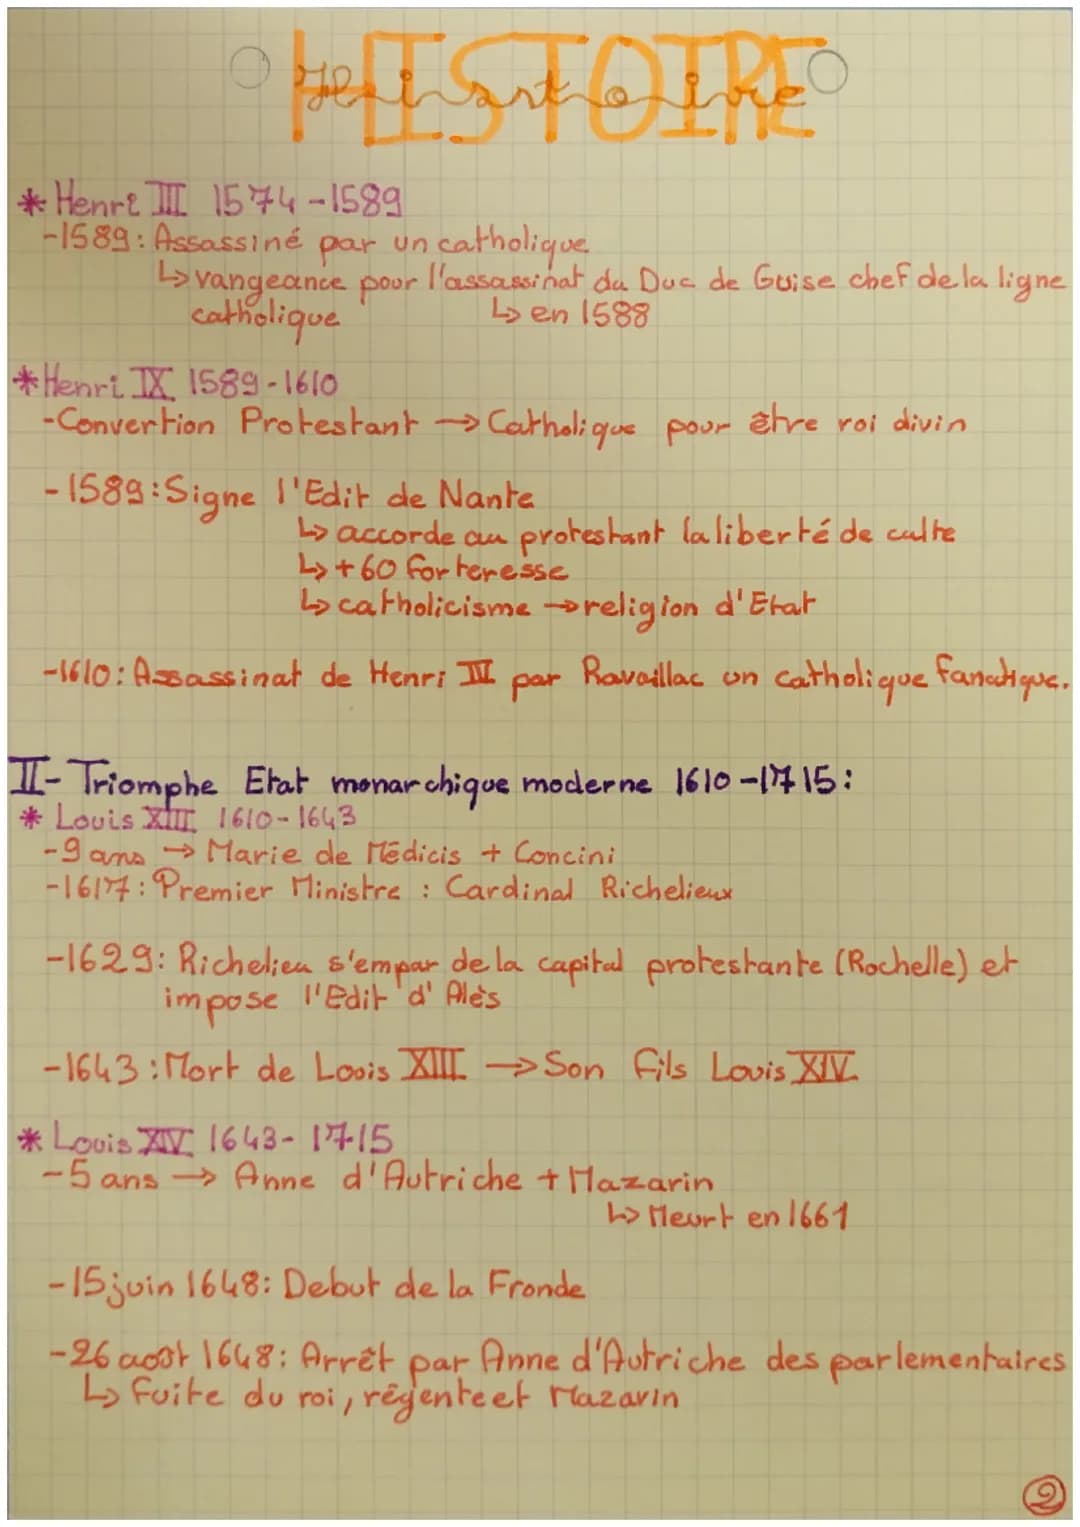 HISTOIRE
Histoire
* Henri III 1574-1589
-1589: Assassiné par un catholique
↳ vangeance pour l'assassinat du Duc de Guise chef de la ligne
catholique ↳ en 1588
* Henri IX 1589-1610
-Convertion Protestant → Catholique pour être roi divin
-1589: Signe l'Edit de Nante
↳ accorde au protestant la liberté de culte
↳ +60 forteresse
↳ catholicisme → religion d'Etat
-1610: Assassinat de Henri IV par Ravaillac un catholique fanatique.
II- Triomphe Etat monarchique moderne 1610-1715:
* Louis XIII 1610-1643
-9 ans → Marie de Médicis + Concini
-1617: Premier Ministre : Cardinal Richelieux
-1629: Richelieu s'empar de la capital protestante (Rochelle) et
impose l'Edit d'Alès
-1643: Mort de Louis XIII → Son fils Louis XIV
* Louis XIV 1643-1715
-5 ans → Anne d'Autriche + Mazarin
↳ Meurt en 1661
-15 juin 1648: Debut de la Fronde
-26 aost 1648: Arrêt par Anne d'Autriche des parlementaires
↳ Fuite du roi, régente et Mazarin
2